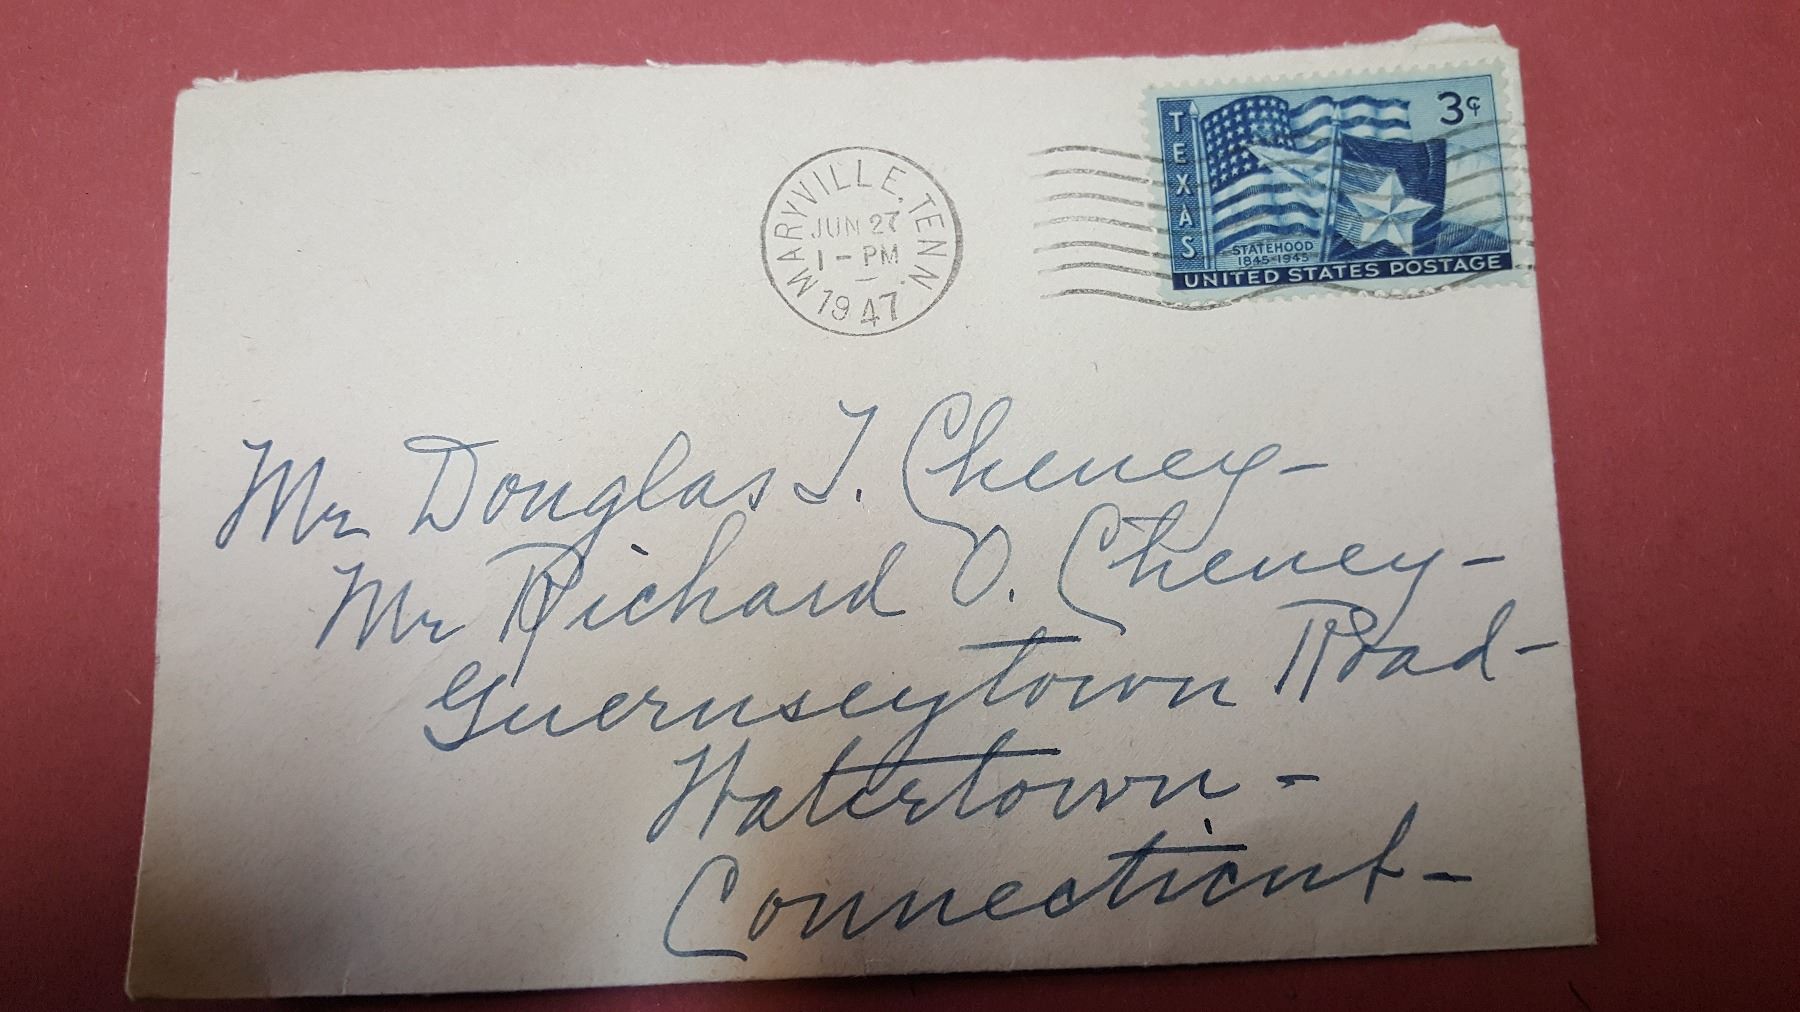 MARYVILLE, TENN.
JUN 27
1 - PM
1947
TEXAS
3¢
STATEHOOD
1845-1945
UNITED STATES POSTAGE
Mr Douglas T. Cheney-
Mr Richard O. Cheney-
Guernseytown Road-
Watertown-
Connecticut-